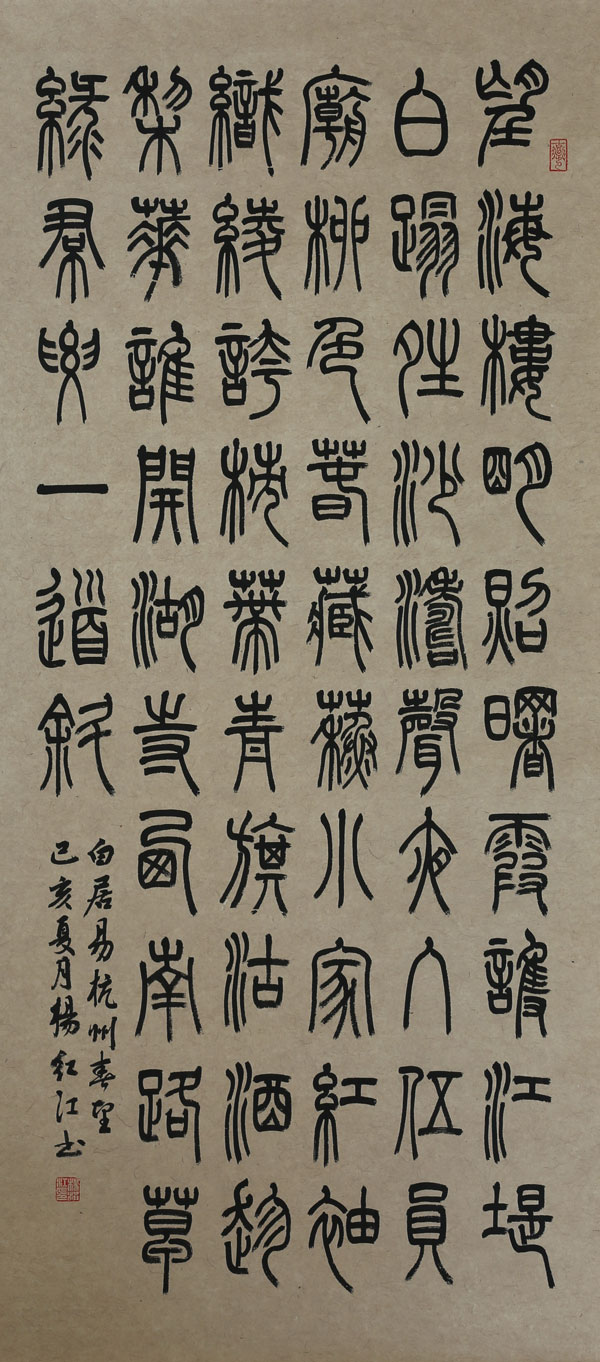 望海樓明照曙霞護江堤
白蹋夝沙濤聲夜入伍員
廟柳色春藏蘇小家紅袖
織綾誇柿葉青旗沽酒趁
棃華誰開湖寺西南路草
綠帬要一道斜
白居易杭州春望
己亥夏月楊紅江书